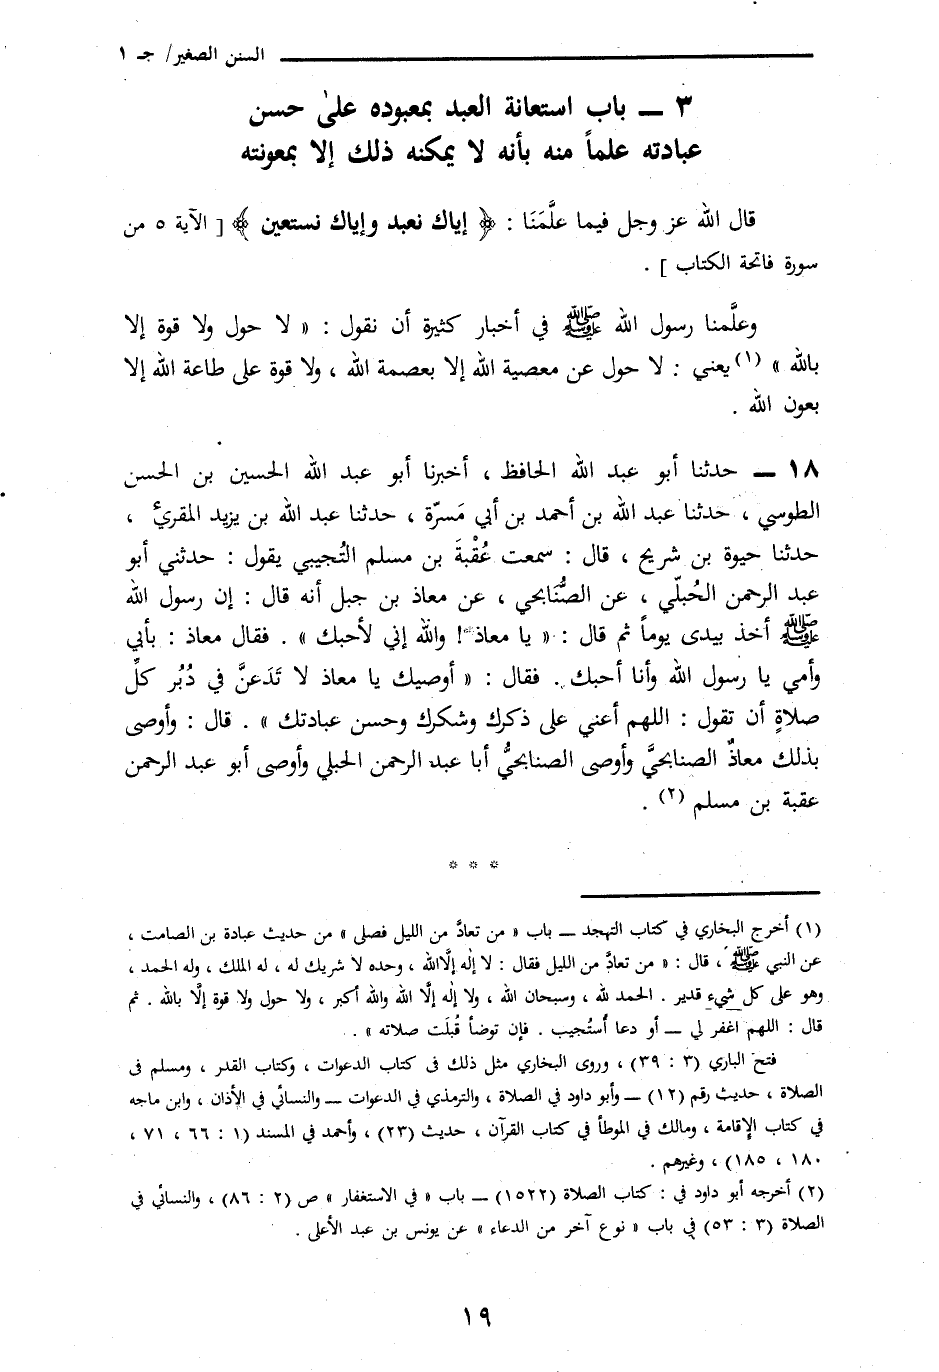 السنن الصغير/ جـ ١
٣ ـــ باب استعانة العبد بمعبوده على حسن
عبادته علماً منه بأنه لا يمكنه ذلك إلا بمعونته
قال الله عز وجل فيما علَّمَنَا : ﴿ إياك نعبد وإياك نستعين ﴾ [ الآية ٥ من
سورة فاتحة الكتاب ] .
وعلَّمنا رسول الله ﷺ في أخبار كثيرة أن نقول : « لا حول ولا قوة إلا
بالله » (١) يعني : لا حول عن معصية الله إلا بعصمة الله ، ولا قوة على طاعة الله إلا
بعون الله .
١٨ ـــ حدثنا أبو عبد الله الحافظ ، أخبرنا أبو عبد الله الحسين بن الحسن
الطوسي ، حدثنا عبد الله بن أحمد بن أبي مَسرّة ، حدثنا عبد الله بن يزيد المقريُ ،
حدثنا حيوة بن شريح ، قال : سمعت عُقْبةَ بن مسلم التُجيبي يقول : حدثني أبو
عبد الرحمن الحُبلّي ، عن الصُّنَابحي ، عن معاذ بن جبل أنه قال : إن رسول الله
ﷺ أخذ بيدى يوماً ثم قال : « يا معاذ ! والله إني لأحبك » . فقال معاذ : بأبي
وأمي يا رسول الله وأنا أحبك . فقال : « أوصيك يا معاذ لا تَدَعنَّ في دُبُر كلِّ
صلاةٍ أن تقول : اللهم أعني على ذكرك وشكرك وحسن عبادتك » . قال : وأوصى
بذلك معاذٌ الصنابحيَّ وأوصى الصنابحيُّ أبا عبد الرحمن الحبلي وأوصى أبو عبد الرحمن
عقبة بن مسلم (٢) .
* * *
(١) أخرج البخاري في كتاب التهجد ـــ باب « من تعادَّ من الليل فصلى » من حديث عبادة بن الصامت ،
عن النبي ﷺ ، قال : « من تعادَّ من الليل فقال : لا إله إلَّا الله ، وحده لا شريك له ، له الملك ، وله الحمد ،
وهو على كل شيء قدير . الحمد لله ، وسبحان الله ، ولا إله إلَّا الله والله أكبر ، ولا حول ولا قوة إلَّا بالله . ثم
قال : اللهم اغفر لي ـــ أو دعا أستُجيب . فإن توضأ قُبلَت صلاته » .
فتح الباري (٣ : ٣٩) ، وروى البخاري مثل ذلك فى كتاب الدعوات ، وكتاب القدر ، ومسلم فى
الصلاة ، حديث رقم (١٢) ـــ وأبو داود في الصلاة ، والترمذي في الدعوات ـــ والنسائي في الأذان ، وابن ماجه
في كتاب الإقامة ، ومالك في الموطأ في كتاب القرآن ، حديث (٢٣) ، وأحمد في المسند (١ : ٦٦ ، ٧١ ،
١٨٠ ، ١٨٥) ، وغيرهم .
(٢) أخرجه أبو داود في : كتاب الصلاة (١٥٢٢) ـــ باب « في الاستغفار » ص (٢ : ٨٦) ، والنسائي في
الصلاة (٣ : ٥٣) في باب « نوع آخر من الدعاء » عن يونس بن عبد الأعلى .
١٩